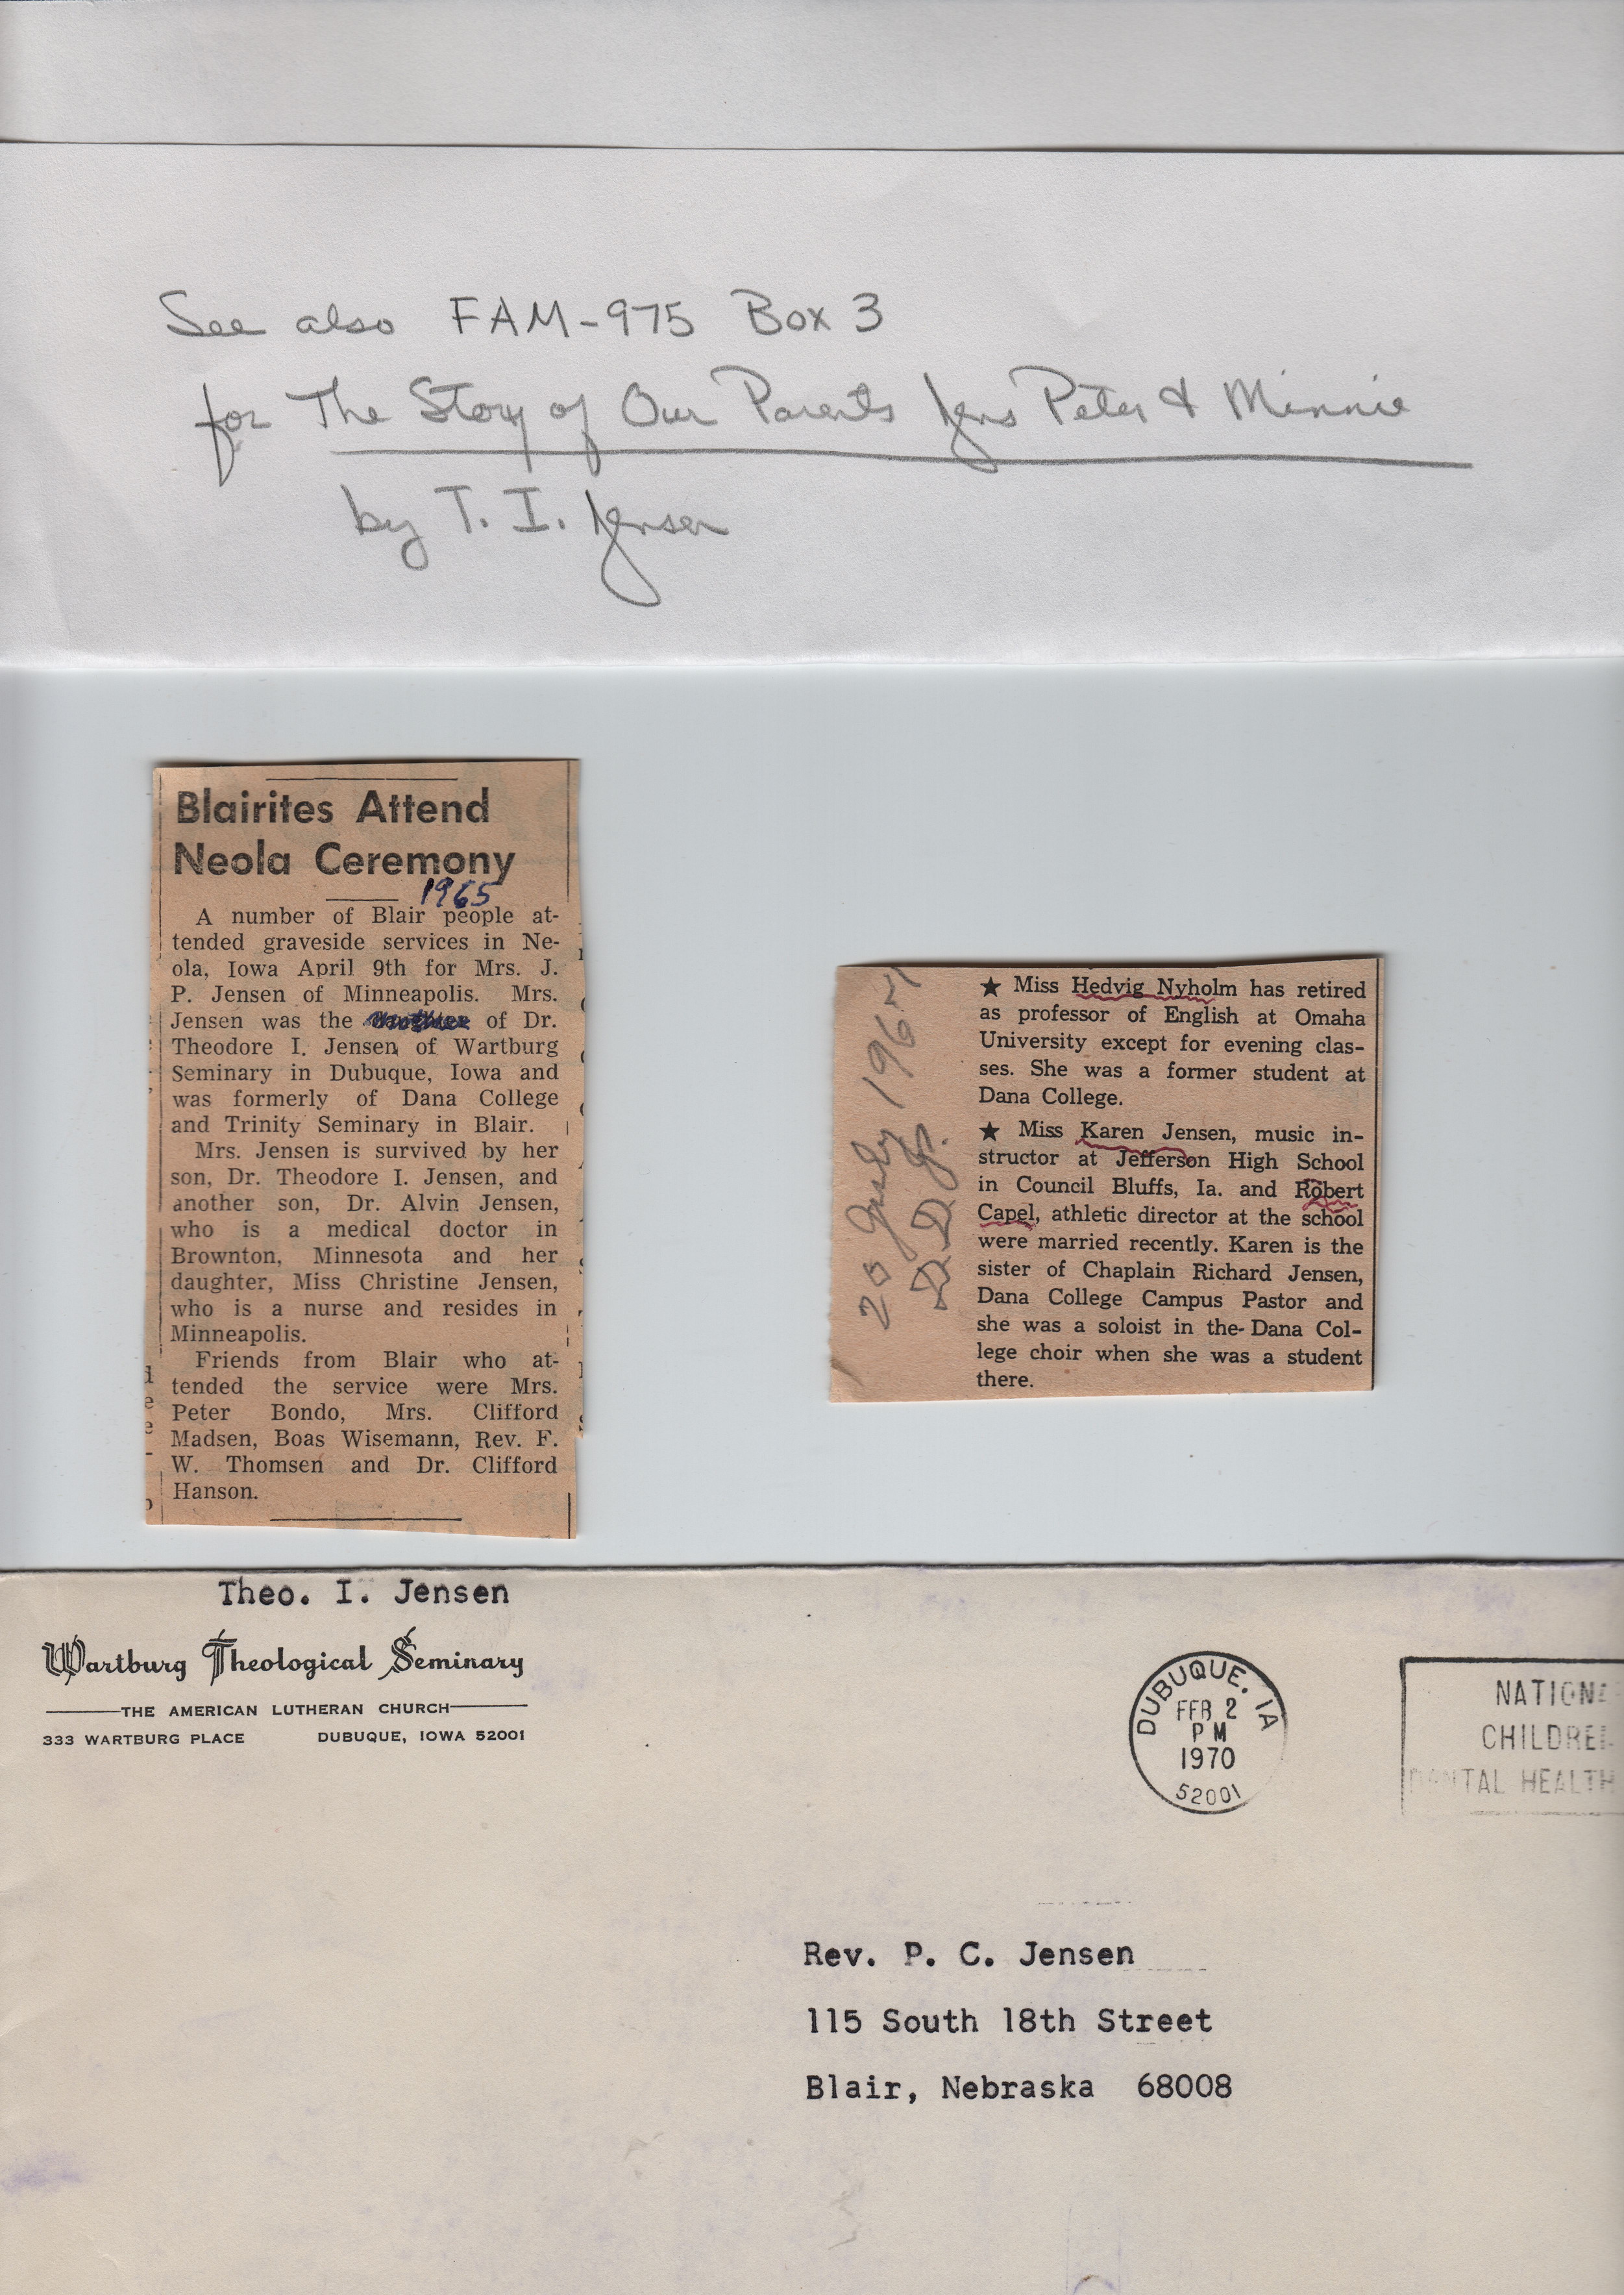 See also FAM-975 Box 3
for The Story of Our Parents Jens Peter & Minnie
by T. I. Jensen
Blairites Attend
Neola Ceremony
1965
A number of Blair people at-
tended graveside services in Ne-
ola, Iowa April 9th for Mrs. J.
P. Jensen of Minneapolis. Mrs.
Jensen was the of Dr.
Theodore I. Jensen of Wartburg
Seminary in Dubuque, Iowa and
was formerly of Dana College
and Trinity Seminary in Blair.
Mrs. Jensen is survived by her
son, Dr. Theodore I. Jensen, and
another son, Dr. Alvin Jensen,
who is a medical doctor in
Brownton, Minnesota and her
daughter, Miss Christine Jensen,
who is a nurse and resides in
Minneapolis.
Friends from Blair who at-
tended the service were Mrs.
Peter Bondo, Mrs. Clifford
Madsen, Boas Wisemann, Rev. F.
W. Thomsen and Dr. Clifford
Hanson.
20 July
★ Miss Hedvig Nyholm has retired
as professor of English at Omaha
University except for evening clas-
ses. She was a former student at
Dana College.
★ Miss Karen Jensen, music in-
structor at Jefferson High School
in Council Bluffs, Ia. and Robert
Capel, athletic director at the school
were married recently. Karen is the
sister of Chaplain Richard Jensen,
Dana College Campus Pastor and
she was a soloist in the Dana Col-
lege choir when she was a student
there.
Theo. I. Jensen
Wartburg Theological Seminary
THE AMERICAN LUTHERAN CHURCH
333 WARTBURG PLACE DUBUQUE, IOWA 52001
DUBUQUE, IA
FEB 2
PM
1970
52001
NATIONA
CHILDRE
DENTAL HEALTH
Rev. P. C. Jensen
115 South 18th Street
Blair, Nebraska 68008